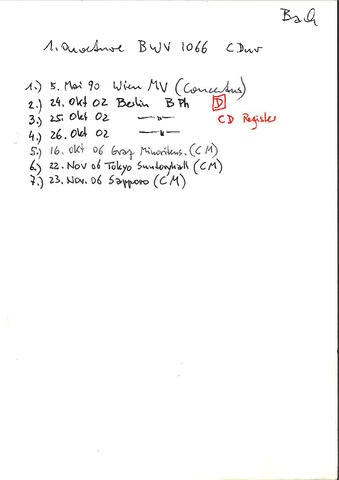 Bach
1. Ouverture BWV 1066 CDur
1.) 5. Mai 90 Wien MV (Concentus)
2.) 24. Okt 02 Berlin B Ph D
3.) 25. Okt 02 —"— CD Register
4.) 26. Okt 02 —"—
5.) 16. Okt 06 Graz Minoritens. (CM)
6.) 22. Nov 06 Tokyo Suntoryhall (CM)
7.) 23. Nov. 06 Sapporo (CM)